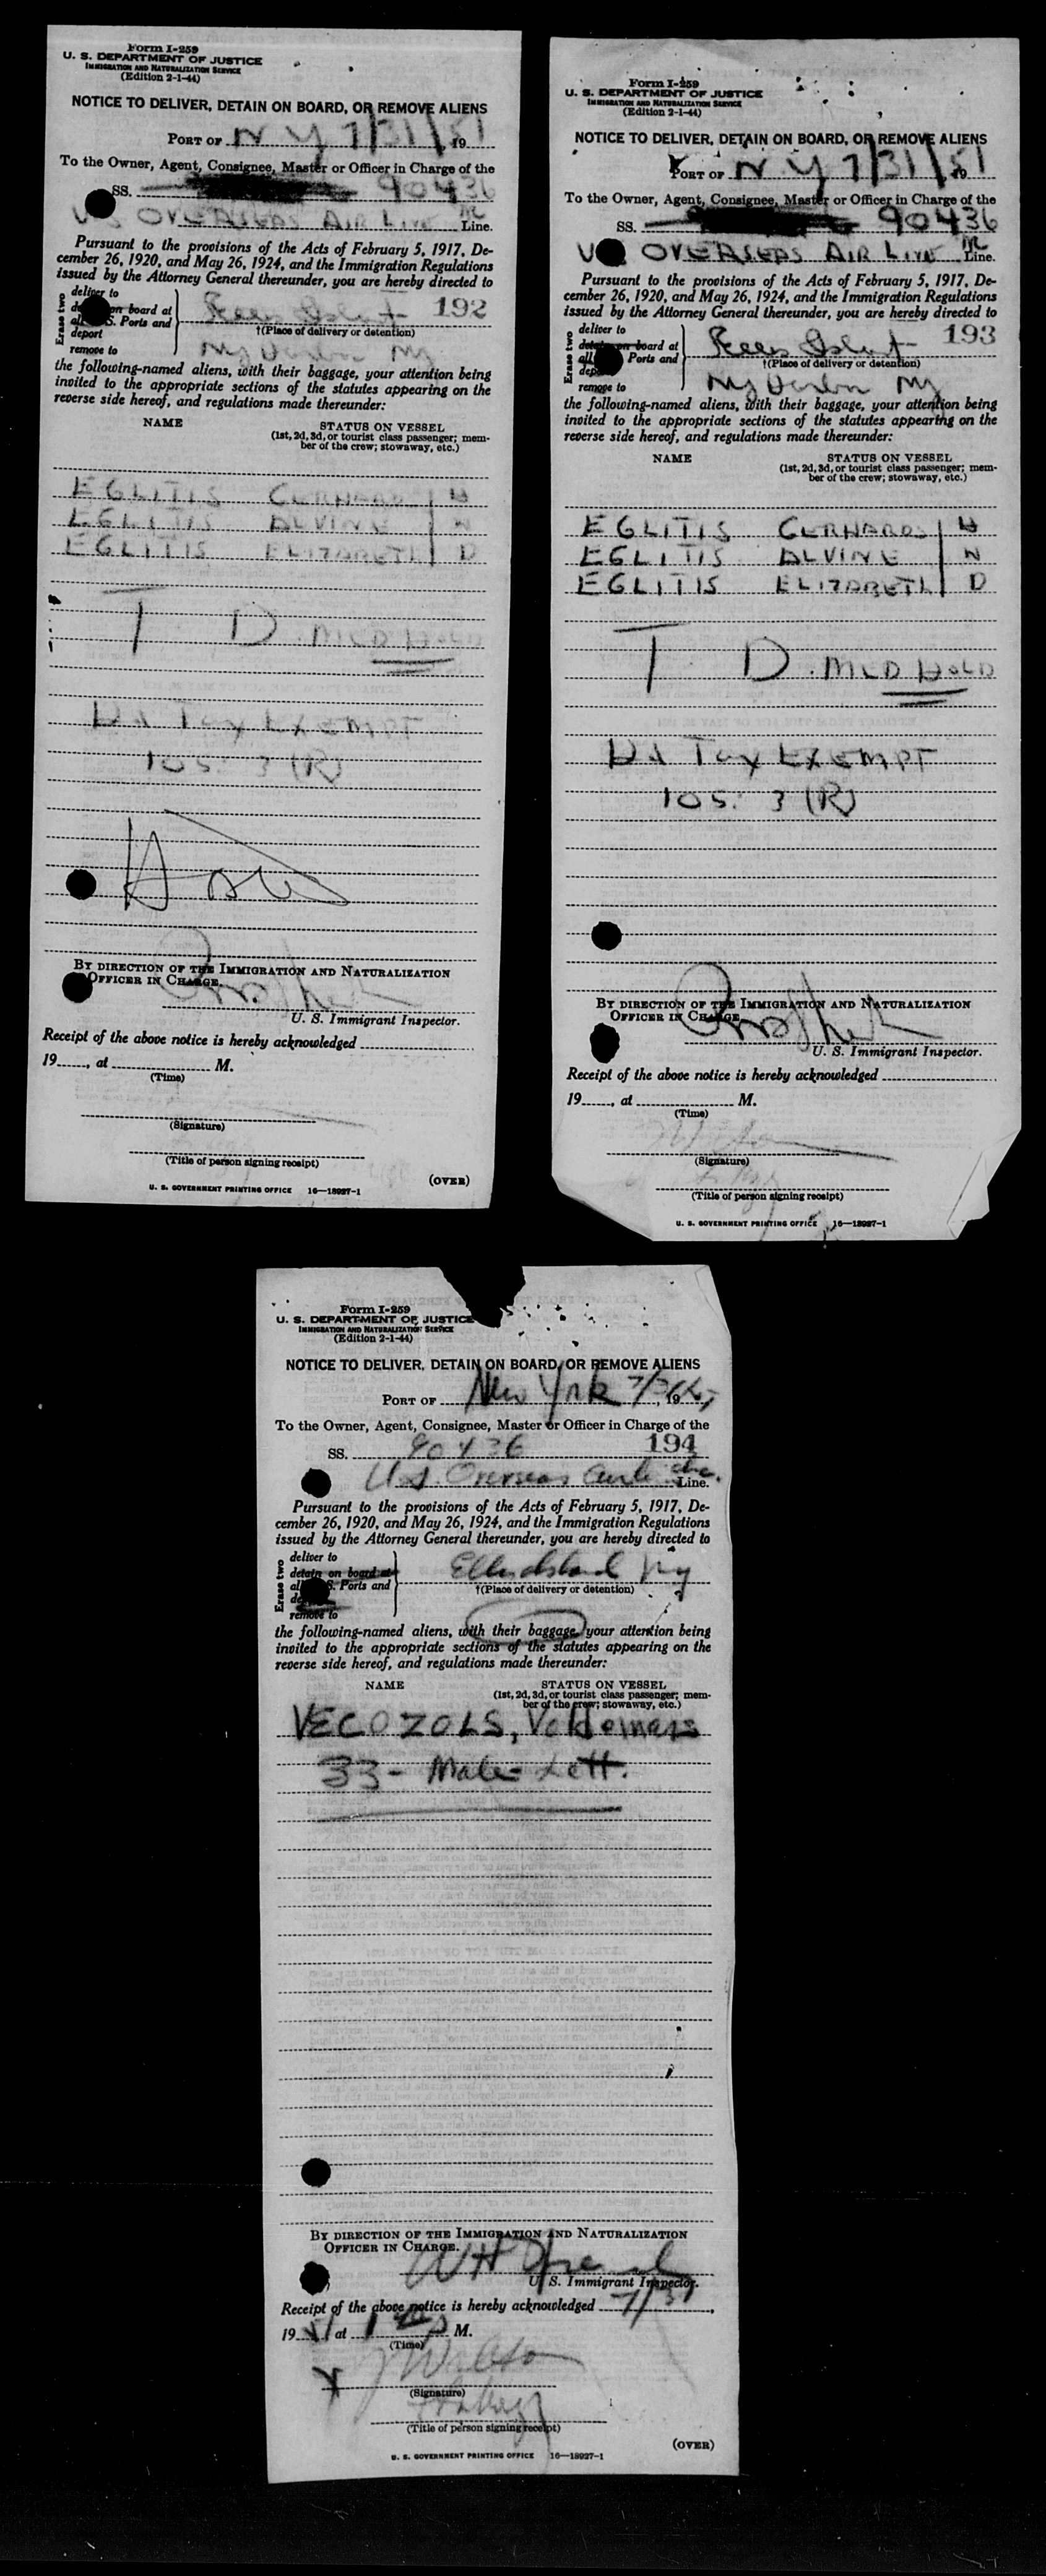 Form I-259
U. S. DEPARTMENT OF JUSTICE
IMMIGRATION AND NATURALIZATION SERVICE
(Edition 2-1-44)
NOTICE TO DELIVER, DETAIN ON BOARD, OR REMOVE ALIENS
PORT OF N Y 7/31/51 , 19
To the Owner, Agent, Consignee, Master or Officer in Charge of the
SS. 90436
U S OVERSEAS AIR LINE Line.
Pursuant to the provisions of the Acts of February 5, 1917, De-
cember 26, 1920, and May 26, 1924, and the Immigration Regulations
issued by the Attorney General thereunder, you are hereby directed to
Erase two
deliver to
on board at
S. Ports and
deport
remove to
192
†(Place of delivery or detention)
NY
the following-named aliens, with their baggage, your attention being
invited to the appropriate sections of the statutes appearing on the
reverse side hereof, and regulations made thereunder:
NAME STATUS ON VESSEL
(1st, 2d, 3d, or tourist class passenger; mem-
ber of the crew; stowaway, etc.)
EGLITIS GERHARDS H
EGLITIS ALVINE W
EGLITIS ELIZABETH D
T. D. MED HOLD
Hd Tax EXEMPT
105. 3 (R)
BY DIRECTION OF THE IMMIGRATION AND NATURALIZATION
OFFICER IN CHARGE.
U. S. Immigrant Inspector.
Receipt of the above notice is hereby acknowledged
19, at M.
(Time)
(Signature)
(Title of person signing receipt)
(OVER)
U. S. GOVERNMENT PRINTING OFFICE 16—18927-1
Form I-259
U. S. DEPARTMENT OF JUSTICE
IMMIGRATION AND NATURALIZATION SERVICE
(Edition 2-1-44)
NOTICE TO DELIVER, DETAIN ON BOARD, OR REMOVE ALIENS
PORT OF N Y 7/31/51 , 19
To the Owner, Agent, Consignee, Master or Officer in Charge of the
SS. 90436
U OVERSEAS AIR LINE Line.
Pursuant to the provisions of the Acts of February 5, 1917, De-
cember 26, 1920, and May 26, 1924, and the Immigration Regulations
issued by the Attorney General thereunder, you are hereby directed to
Erase two
deliver to
detain on board at
all Ports and
remove to
193
†(Place of delivery or detention)
NY
the following-named aliens, with their baggage, your attention being
invited to the appropriate sections of the statutes appearing on the
reverse side hereof, and regulations made thereunder:
NAME STATUS ON VESSEL
(1st, 2d, 3d, or tourist class passenger; mem-
ber of the crew; stowaway, etc.)
EGLITIS GERHARDS H
EGLITIS ALVINE W
EGLITIS ELIZABETH D
T. D. MED HOLD
Hd Tax EXEMPT
105. 3 (R)
BY DIRECTION OF THE IMMIGRATION AND NATURALIZATION
OFFICER IN CHARGE
U. S. Immigrant Inspector.
Receipt of the above notice is hereby acknowledged
19, at M.
(Time)
(Signature)
(Title of person signing receipt)
U. S. GOVERNMENT PRINTING OFFICE 16—18927-1
Form I-259
U. S. DEPARTMENT OF JUSTICE
IMMIGRATION AND NATURALIZATION SERVICE
(Edition 2-1-44)
NOTICE TO DELIVER, DETAIN ON BOARD, OR REMOVE ALIENS
PORT OF New York 7/31, 19
To the Owner, Agent, Consignee, Master or Officer in Charge of the
SS. 90436 194
U.S. Overseas Inc. Line.
Pursuant to the provisions of the Acts of February 5, 1917, De-
cember 26, 1920, and May 26, 1924, and the Immigration Regulations
issued by the Attorney General thereunder, you are hereby directed to
Erase two
deliver to
detain on board at
S. Ports and
remove to
Ellis Island NY
†(Place of delivery or detention)
the following-named aliens, with their baggage, your attention being
invited to the appropriate sections of the statutes appearing on the
reverse side hereof, and regulations made thereunder:
NAME STATUS ON VESSEL
(1st, 2d, 3d, or tourist class passenger; mem-
ber of the crew; stowaway, etc.)
VECOZOLS, Voldemars
33 - Male - Lett.
BY DIRECTION OF THE IMMIGRATION AND NATURALIZATION
OFFICER IN CHARGE.
U. S. Immigrant Inspector.
Receipt of the above notice is hereby acknowledged 7/31,
1951 at M.
(Time)
(Signature)
(Title of person signing receipt)
(OVER)
U. S. GOVERNMENT PRINTING OFFICE 16—18927-1